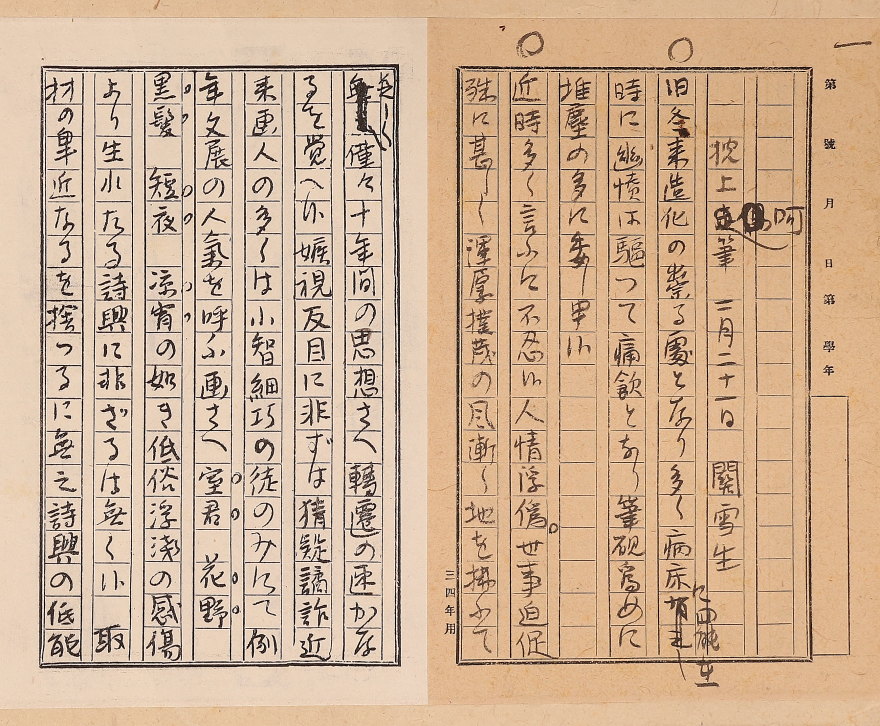 一
第 號 月 日 第 學年
枕上呵筆 二月二十一日 關雪生
旧冬来造化の祟る處となり多く病床に
時に幽憤は駆つて痛飲となり筆硯為めに
堆塵の多に委し申候
近時多く言ふに不忍候人情浮偽。世事迫促
殊に甚しく淳厚撲茂の風漸く地を拂ふて
三四年用
無く僅々十年間の思想さへ轉遷の速かな
るを覚へ候嫉視反目に非ずは猜疑譎詐近
来画人の多くは小智細巧の徒のみにて例
年文展の人氣を呼ふ画さへ室君 花野
黒髪 短夜 凉宵の如き低俗浮渺の感傷
より生れたる詩興に非ざるは無く候 取
材の卑近なるを捨つるに無之詩興の低能